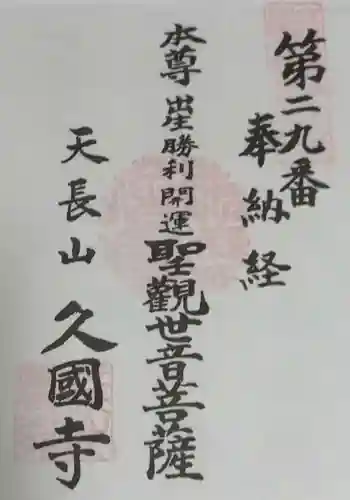 第二九番
奉納経
本尊出生勝利開運聖観世音菩薩
天長山久國寺